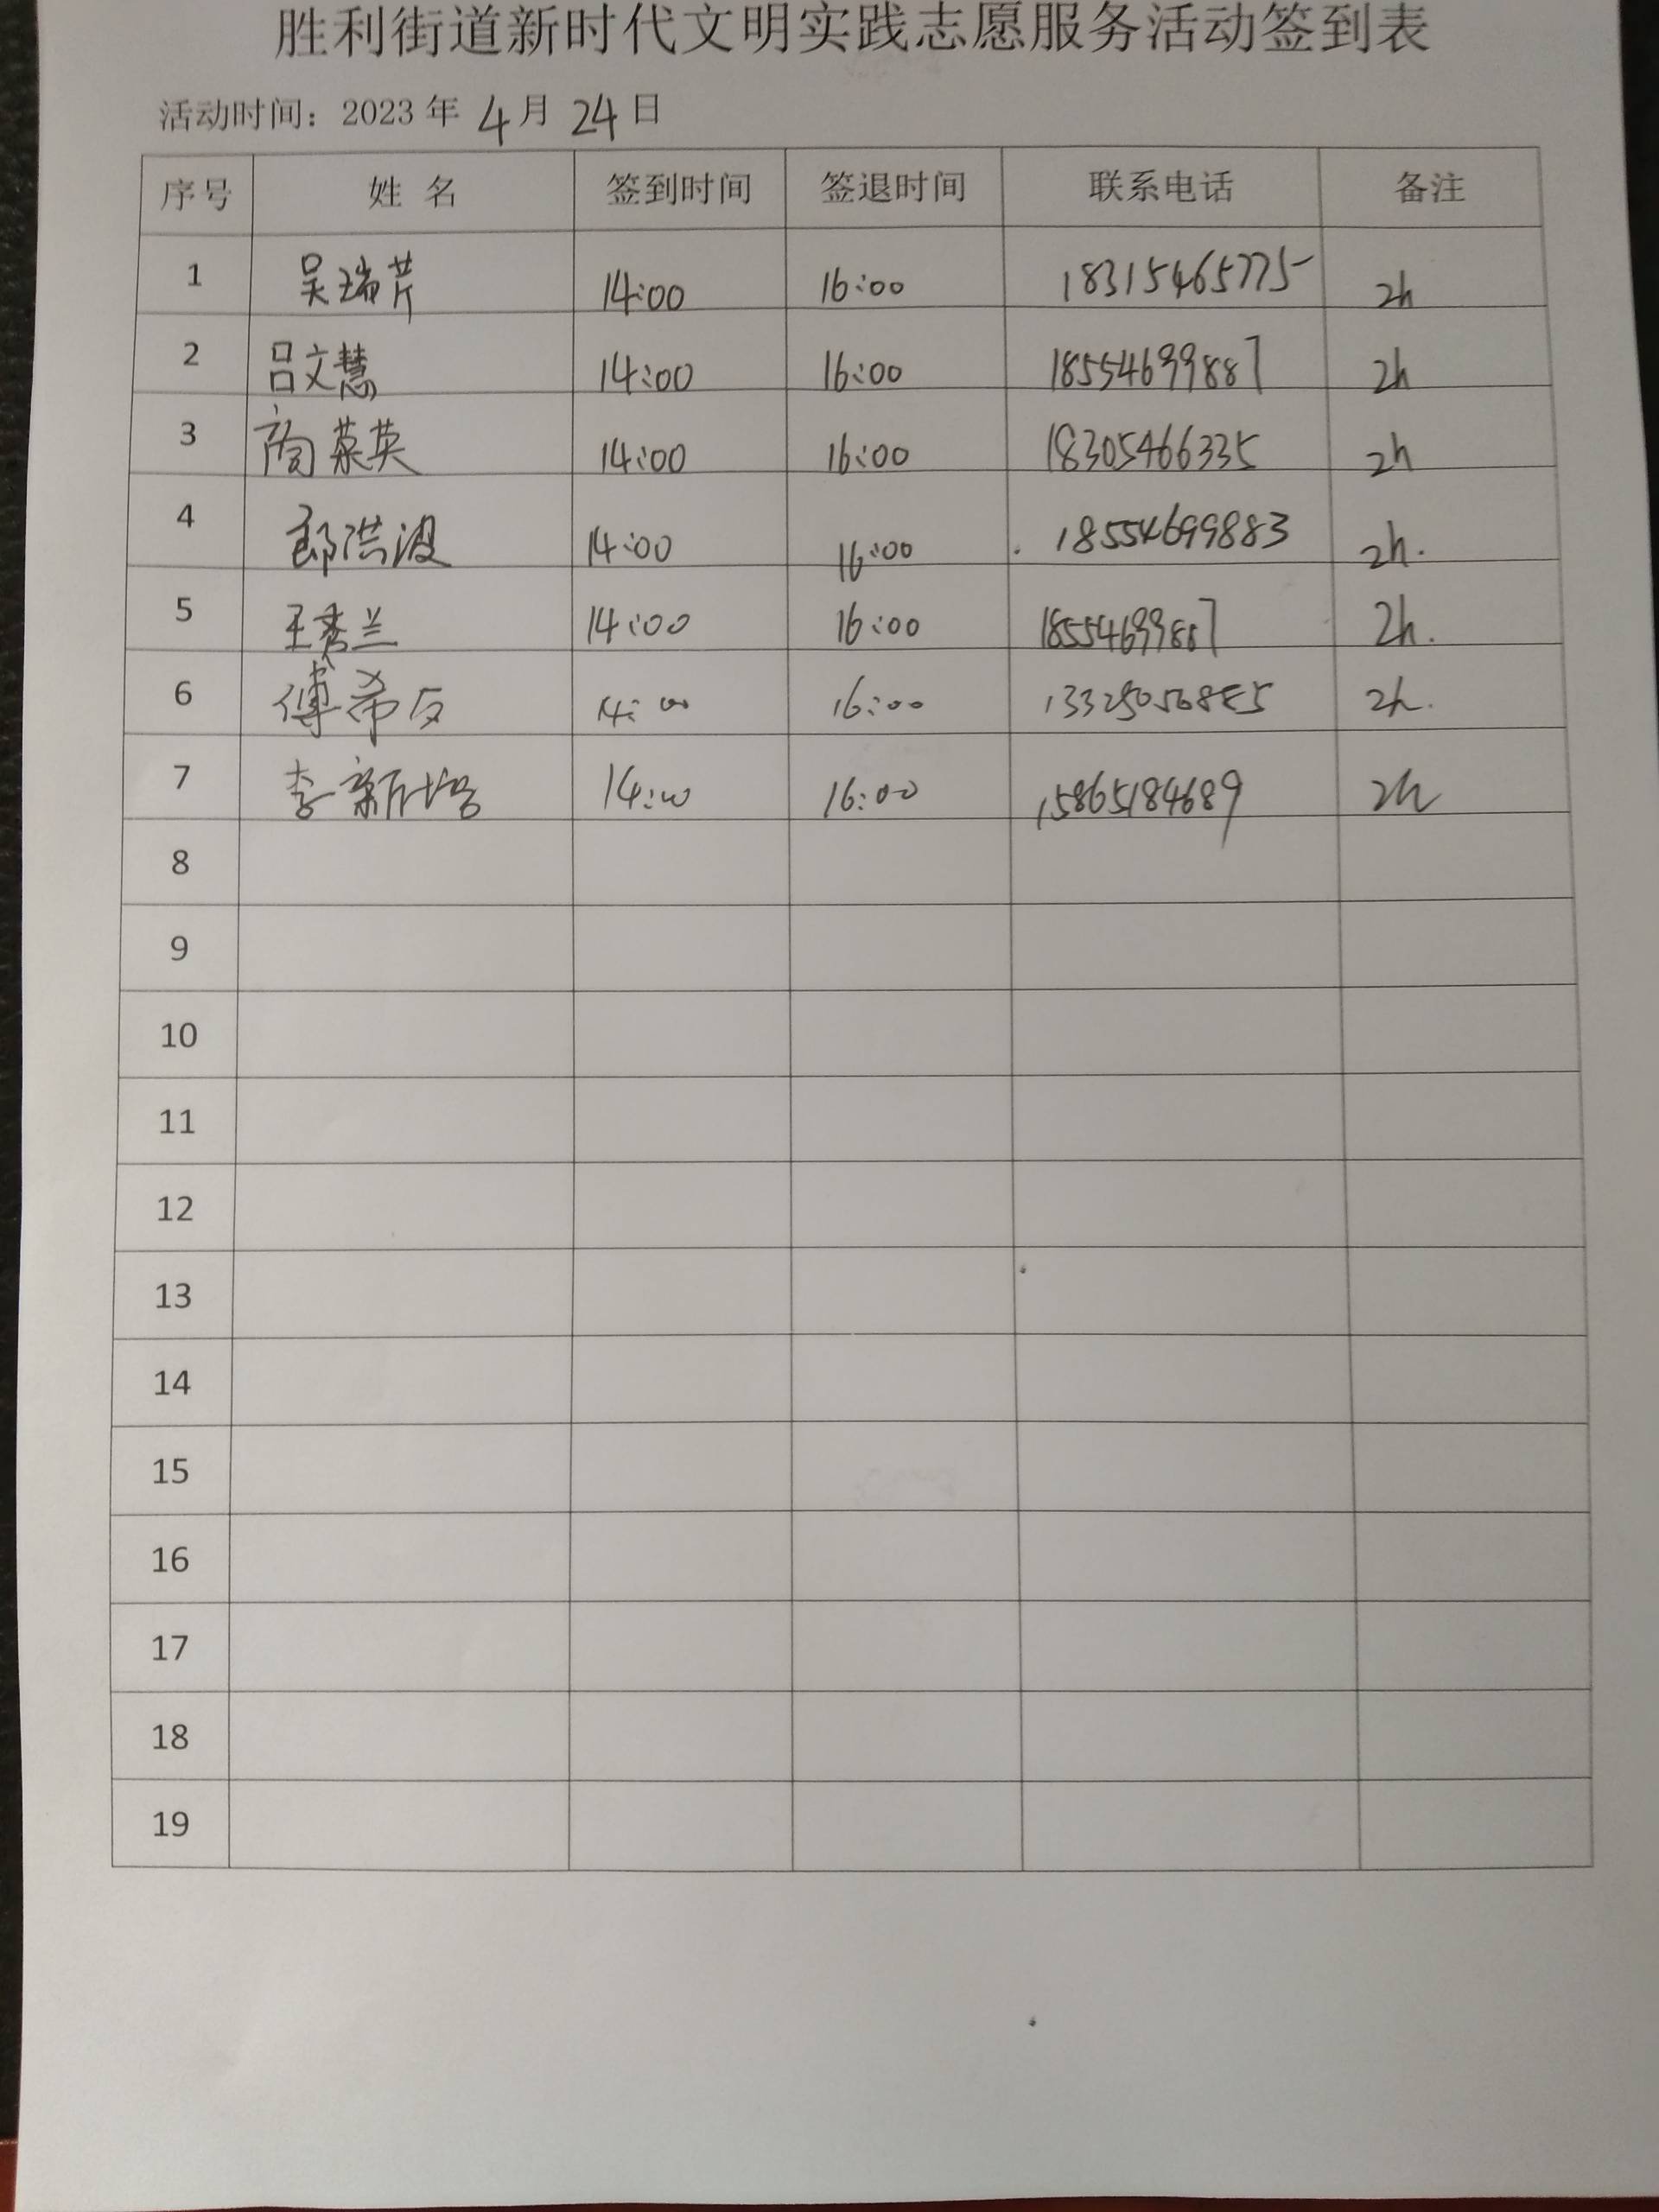 胜利街道新时代文明实践志愿服务活动签到表
活动时间：2023 年 4 月 24 日
序号 姓 名 签到时间 签退时间 联系电话 备注
1 吴瑞芹 14:00 16:00 18315465775 2h
2 吕文慧 14:00 16:00 18554699887 2h
3 陶菜英 14:00 16:00 18305466335 2h
4 郭洪波 14:00 16:00 18554699883 2h.
5 王秀兰 14:00 16:00 18554699887 2h.
6 傅希 14:00 16:00 2h.
7 李新培 14:00 16:00 15865184689 2h
8
9
10
11
12
13
14
15
16
17
18
19